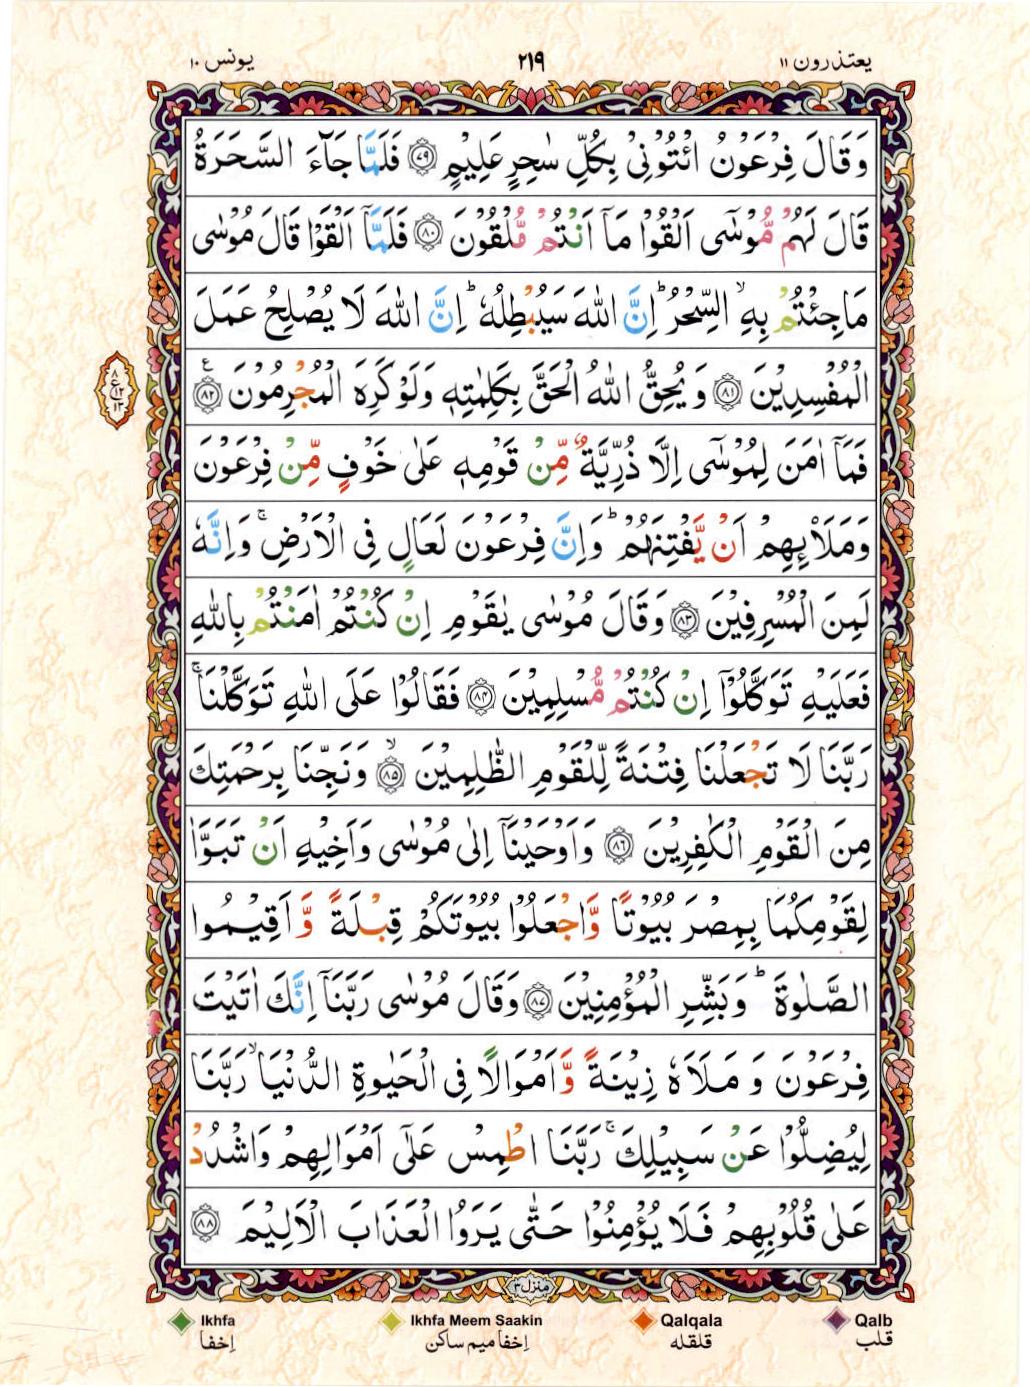 يعتذرون ١١
٢١٩
يونس ١٠
وَقَالَ فِرْعَوْنُ ائْتُوْنِيْ بِكُلِّ سٰحِرٍ عَلِيْمٍ ﴿٧٩﴾ فَلَمَّا جَآءَ السَّحَرَةُ
قَالَ لَهُمْ مُّوْسٰٓى اَلْقُوْا مَآ اَنْتُمْ مُّلْقُوْنَ ﴿٨٠﴾ فَلَمَّآ اَلْقَوْا قَالَ مُوْسٰى
مَا جِئْتُمْ بِهِ ۙ السِّحْرُ ؕ اِنَّ اللّٰهَ سَيُبْطِلُهٗ ؕ اِنَّ اللّٰهَ لَا يُصْلِحُ عَمَلَ
الْمُفْسِدِيْنَ ﴿٨١﴾ وَيُحِقُّ اللّٰهُ الْحَقَّ بِكَلِمٰتِهٖ وَلَوْ كَرِهَ الْمُجْرِمُوْنَ ﴿٨٢﴾ ع
٨
ع ١٢
١٣
فَمَآ اٰمَنَ لِمُوْسٰٓى اِلَّا ذُرِّيَّةٌ مِّنْ قَوْمِهٖ عَلٰى خَوْفٍ مِّنْ فِرْعَوْنَ
وَمَلَا۟ئِهِمْ اَنْ يَّفْتِنَهُمْ ؕ وَاِنَّ فِرْعَوْنَ لَعَالٍ فِي الْاَرْضِ ۚ وَاِنَّهٗ
لَمِنَ الْمُسْرِفِيْنَ ﴿٨٣﴾ وَقَالَ مُوْسٰى يٰقَوْمِ اِنْ كُنْتُمْ اٰمَنْتُمْ بِاللّٰهِ
فَعَلَيْهِ تَوَكَّلُوْٓا اِنْ كُنْتُمْ مُّسْلِمِيْنَ ﴿٨٤﴾ فَقَالُوْا عَلَى اللّٰهِ تَوَكَّلْنَا ۚ
رَبَّنَا لَا تَجْعَلْنَا فِتْنَةً لِّلْقَوْمِ الظّٰلِمِيْنَ ﴿٨٥﴾ ۙ وَنَجِّنَا بِرَحْمَتِكَ
مِنَ الْقَوْمِ الْكٰفِرِيْنَ ﴿٨٦﴾ وَاَوْحَيْنَآ اِلٰى مُوْسٰى وَاَخِيْهِ اَنْ تَبَوَّاٰ
لِقَوْمِكُمَا بِمِصْرَ بُيُوْتًا وَّاجْعَلُوْا بُيُوْتَكُمْ قِبْلَةً وَّاَقِيْمُوا
الصَّلٰوةَ ؕ وَبَشِّرِ الْمُؤْمِنِيْنَ ﴿٨٧﴾ وَقَالَ مُوْسٰى رَبَّنَآ اِنَّكَ اٰتَيْتَ
فِرْعَوْنَ وَمَلَاَهٗ زِيْنَةً وَّاَمْوَالًا فِي الْحَيٰوةِ الدُّنْيَا ۙ رَبَّنَا
لِيُضِلُّوْا عَنْ سَبِيْلِكَ ۚ رَبَّنَا اطْمِسْ عَلٰٓى اَمْوَالِهِمْ وَاشْدُدْ
عَلٰى قُلُوْبِهِمْ فَلَا يُؤْمِنُوْا حَتّٰى يَرَوُا الْعَذَابَ الْاَلِيْمَ ﴿٨٨﴾
منزل ٣
Ikhfa
Ikhfa Meem Saakin
Qalqala
Qalb
إخفا
إخفا ميم ساكن
قلقله
قلب